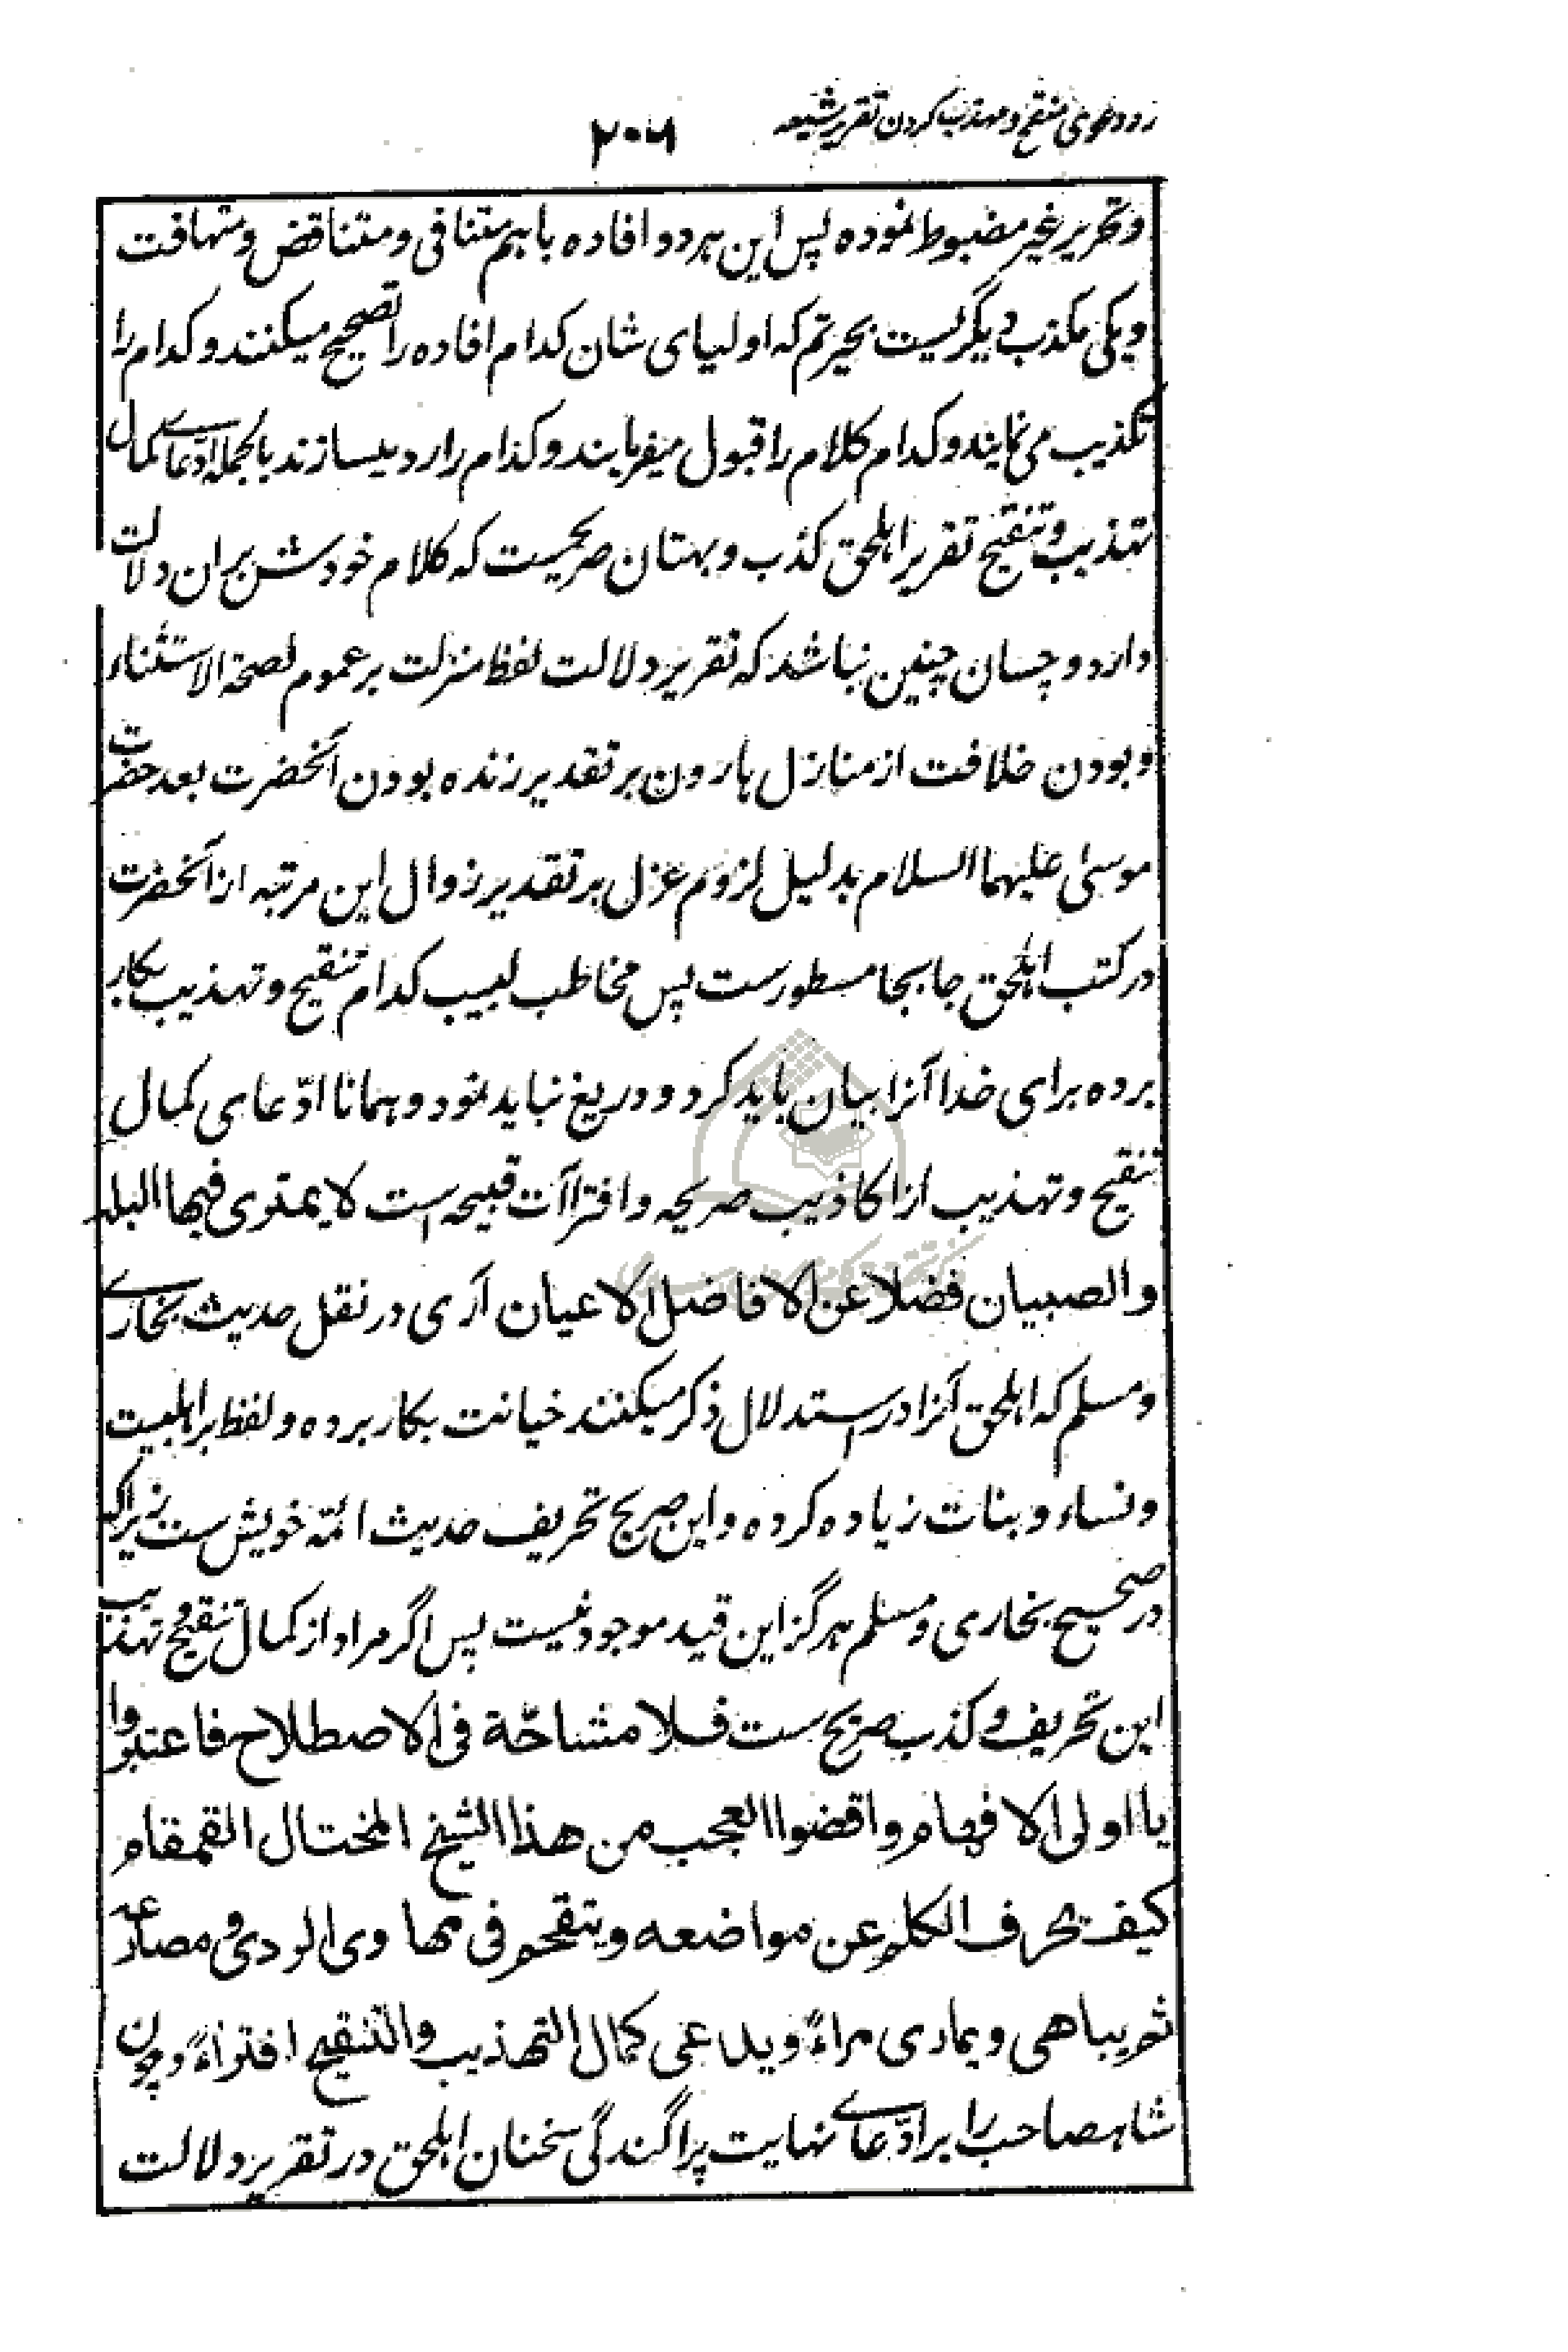 رد دعوی منقح و مهذب کردن تقریر شیعه
۲۰۶
و تحریر غیر مضبوط نموده پس این هر دو افاده باهم متنافی و متناقض و متهافت
و یکی مکذب دیگریست بحیرتم که اولیای شان کدام افاده را تصحیح میکنند و کدام را
تکذیب می نمایند و کدام کلام را قبول میفرمایند و کدام را رد میسازند بالجمله ادّعای کمال
تهذیب و تنقیح تقریر اهلحق کذب و بهتان صریحست که کلام خودش بران دلالت
دارد و چسان چنین نباشد که تقریر دلالت لفظ منزلت بر عموم لصحة الاستثناء
و بودن خلافت از منازل هارون بر تقدیر زنده بودن آنحضرت بعد حضرت
موسیٰ علیهما السلام بدلیل لزوم عزل بر تقدیر زوال این مرتبه از آنحضرت
در کتب اهلحق جا بجا مسطورست پس مخاطب لبیب کدام تنقیح و تهذیب بکار
برده برای خدا آنرا بیان باید کرد و دریغ نباید نمود و همانا ادّعای کمال
تنقیح و تهذیب از اکاذیب صریحه و افتراآت قبیحه است لا یمتری فیها البله
والصبیان فضلا عن الافاضل الاعیان آری در نقل حدیث بخاری
و مسلم که اهلحق آنرا در استدلال ذکر میکنند خیانت بکار برده و لفظ بر اهلبیت
و نساء و بنات زیاده کرده و این صریح تحریف حدیث ائمّه خویش ست زیراکه
در صحیح بخاری و مسلم هرگز این قید موجود نیست پس اگر مراد از کمال تنقیح و تهذیب
این تحریف و کذب صریح ست فلا مشاحّة فی الاصطلاح فاعتبروا
یا اولی الافهام واقضوا العجب من هذا الشیخ المختال القمقام
کیف یحرف الکلم عن مواضعه ویتقحم فی مهاوی الردی و مصارعه
ثم یباهی ویماری مراءً ویدعی کمال التهذیب والتنقیح افتراءً و چون
شاهصاحب را بر ادّعای نهایت پراگندگی سخنان اهلحق در تقریر دلالت